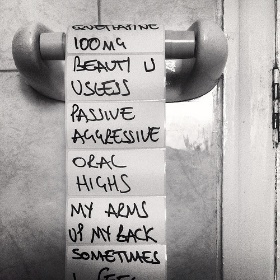 QUETIAPINE
100MG
BEAUTI U
USCESS
PASSIVE
AGGRESSIVE
ORAL
HIGHS
MY ARMS
UP MY BACK
SOMETIMES
I